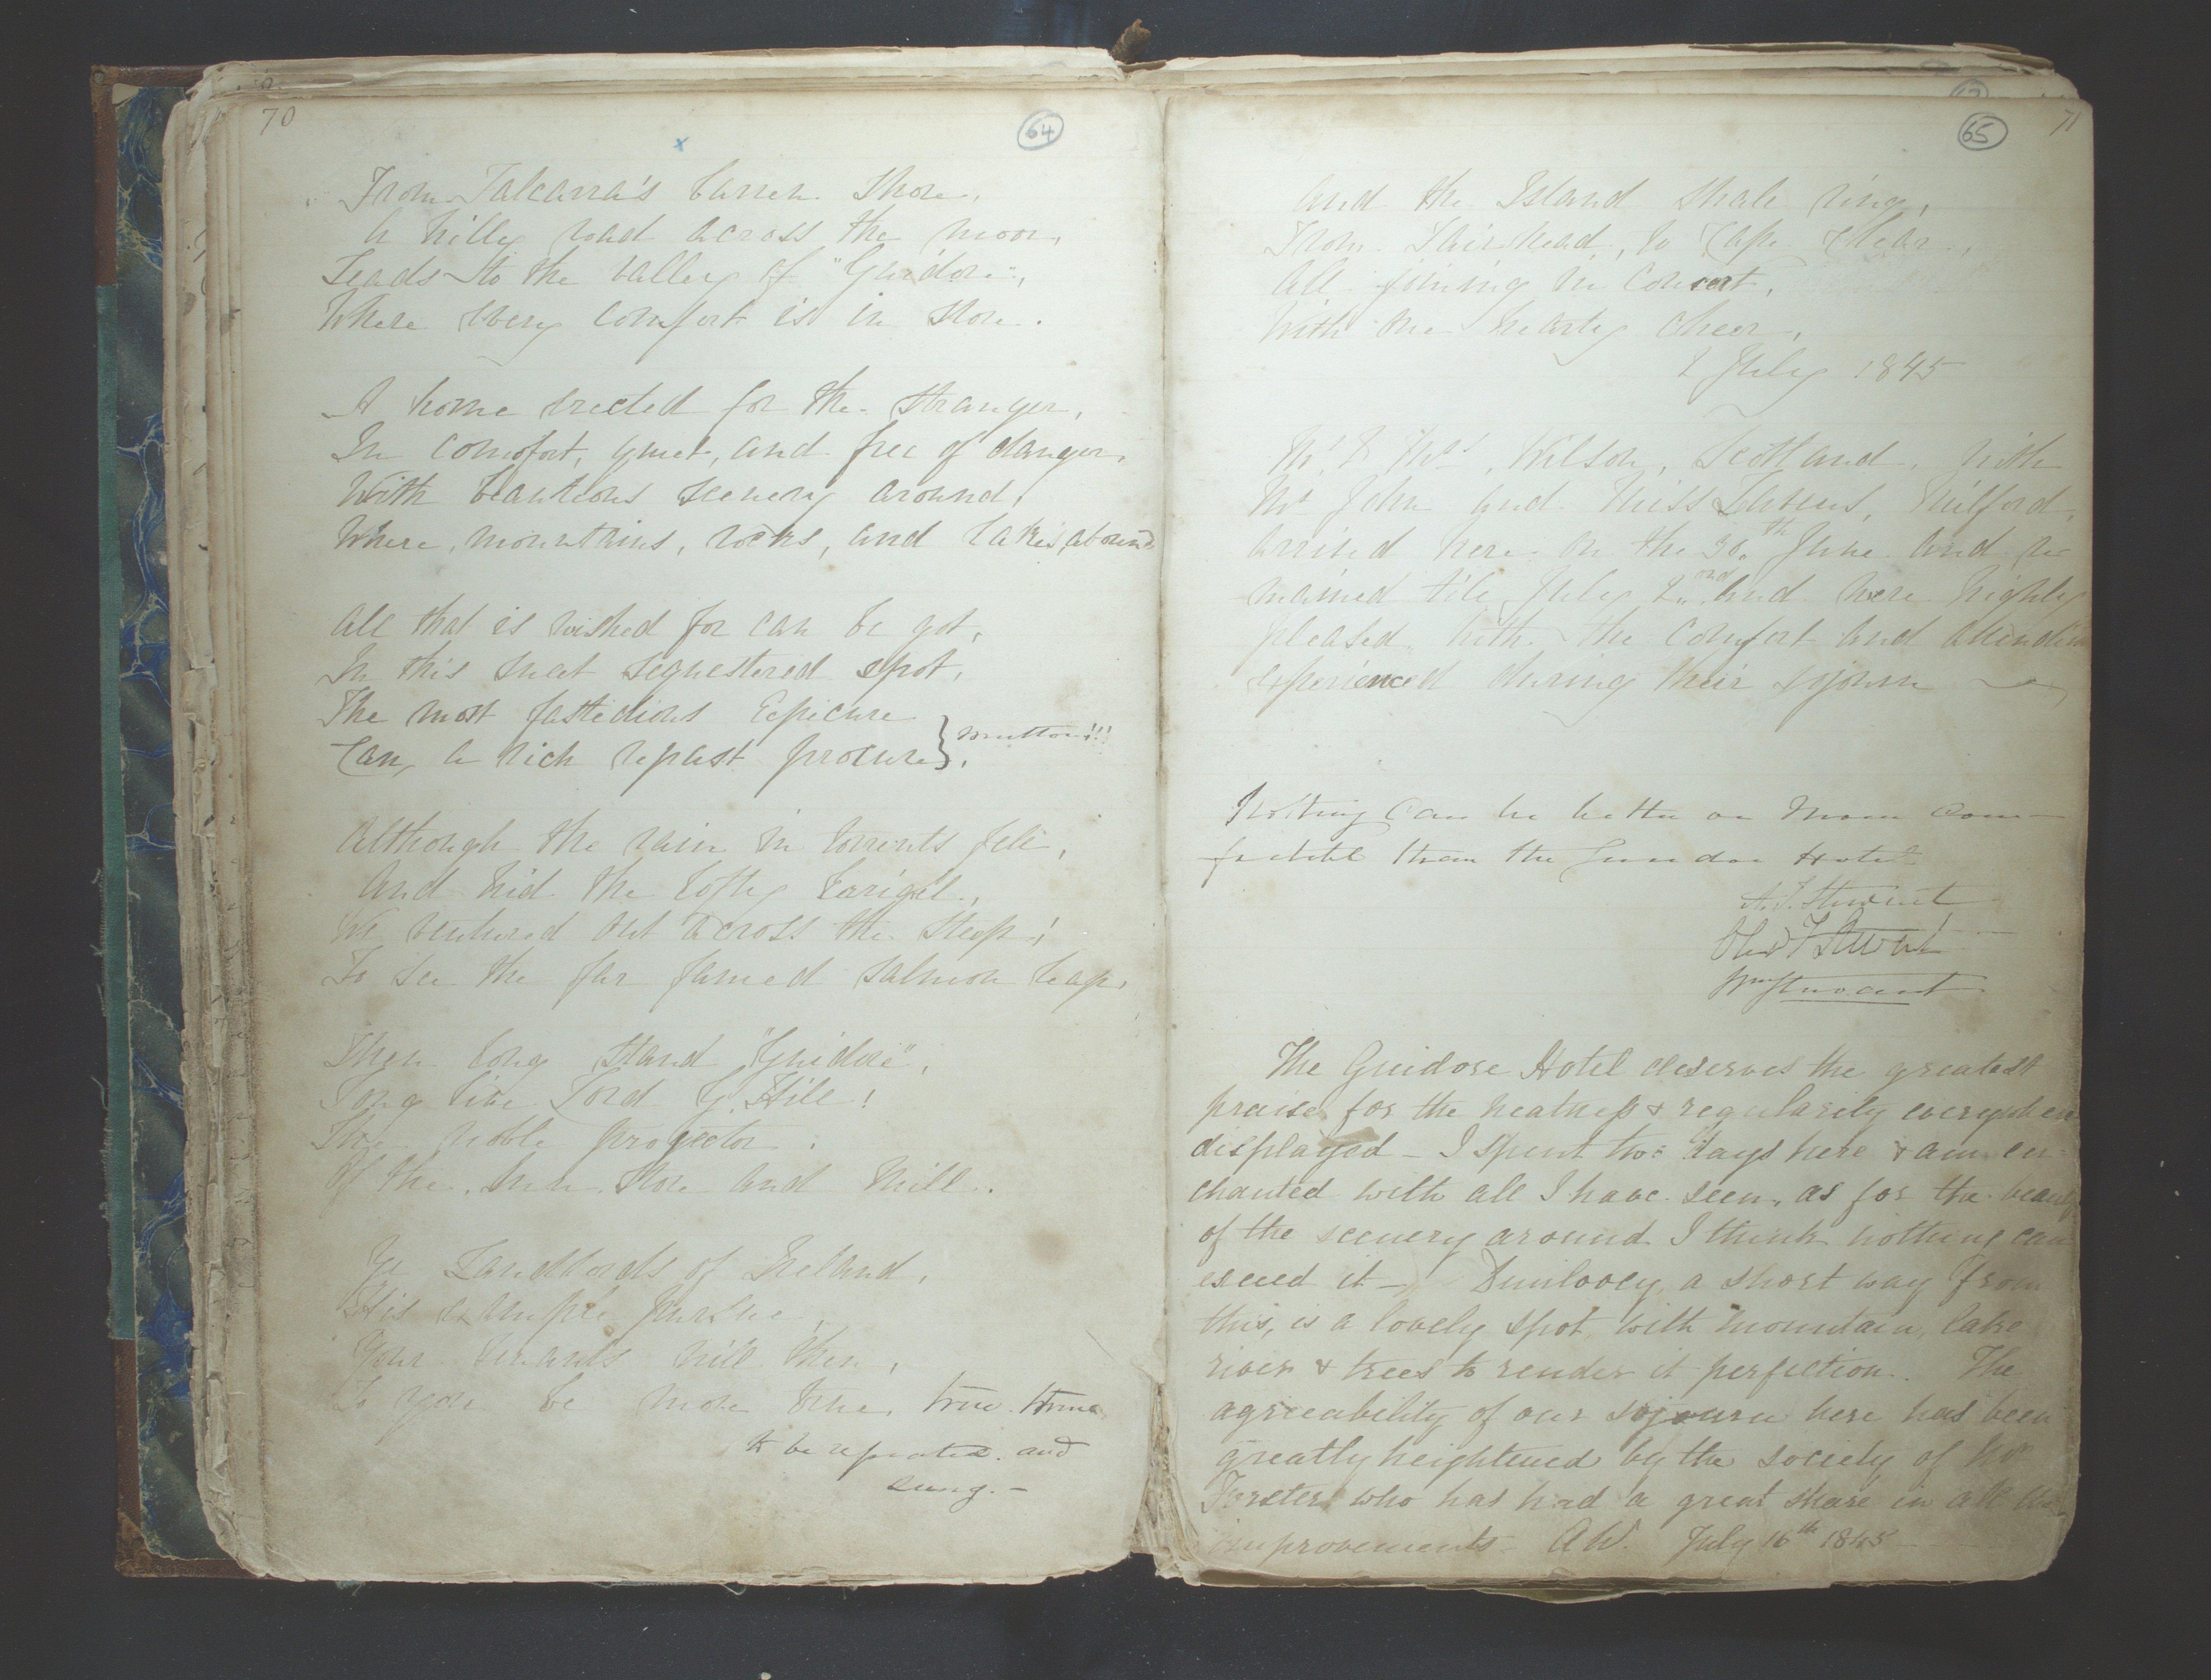 70
64
From Talcarra's barren Shore,
A hilly road across the moor,
Leads to the valley of "Guidore",
Where every comfort is in store.
A home erected for the stranger,
In comfort, quiet, and free of danger,
With beauteous scenery around,
Where, mountains, rocks, and lakes, abound
All that is wished for can be got,
In this sweet sequestered spot,
The most fastidious Epicure
Can, a rich repast procure } mutton!!!
Although the rain in torrents fell,
And hid the lofty Earigil,
We ventured out across the steep!
To see the far famed salmon leap.
Then long stand "Guidore",
Long live Lord G. Hill!
The noble projector
Of the, Inn, Store and Mill.
Ye Landlords of Ireland,
His example pursue,
Your tenants will then,
To you be more true, true. true
to be repeated. and
sung. —
65
71
And the Island shall ring,
From Fairhead, to Cape Clear,
All joining in concert,
With one hearty cheer,
2 July 1845
Mr. & Mrs. Wilson, Scotland, with
Mr John and Miss Milford,
arrived here on the 30th June and re-
mained till July 2nd and were highly
pleased with the comfort and attendance
experienced during their sojourn
Nothing can be better or more com-
fortable than the Guidore Hotel
A. T. Stewart
Stewart
Wm Stewart
The Guidore Hotel deserves the greatest
praise for the neatness & regularity everywhere
displayed — I spent two days here & am en-
chanted with all I have seen, as for the beauty
of the scenery around I think nothing can
exceed it — Dunlooey, a short way from
this, is a lovely spot with mountain, lake
river & trees to render it perfection. The
agreeability of our sojourn here has been
greatly heightened by the society of Mr
Forster who has had a great share in all the
improvements — A.W. July 16th 1845